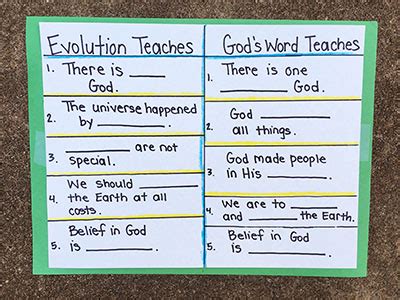 Evolution Teaches
1. There is ______
God.
2. The universe happened
by ______.
3. ______ are not
special.
4. We should ______
the Earth at all
costs.
5. Belief in God
is ______.
God's Word Teaches
1. There is one
______ God.
2. God ______
all things.
3. God made people
in His ______.
4. We are to ______
and ______ the Earth.
5. Belief in God
is ______.